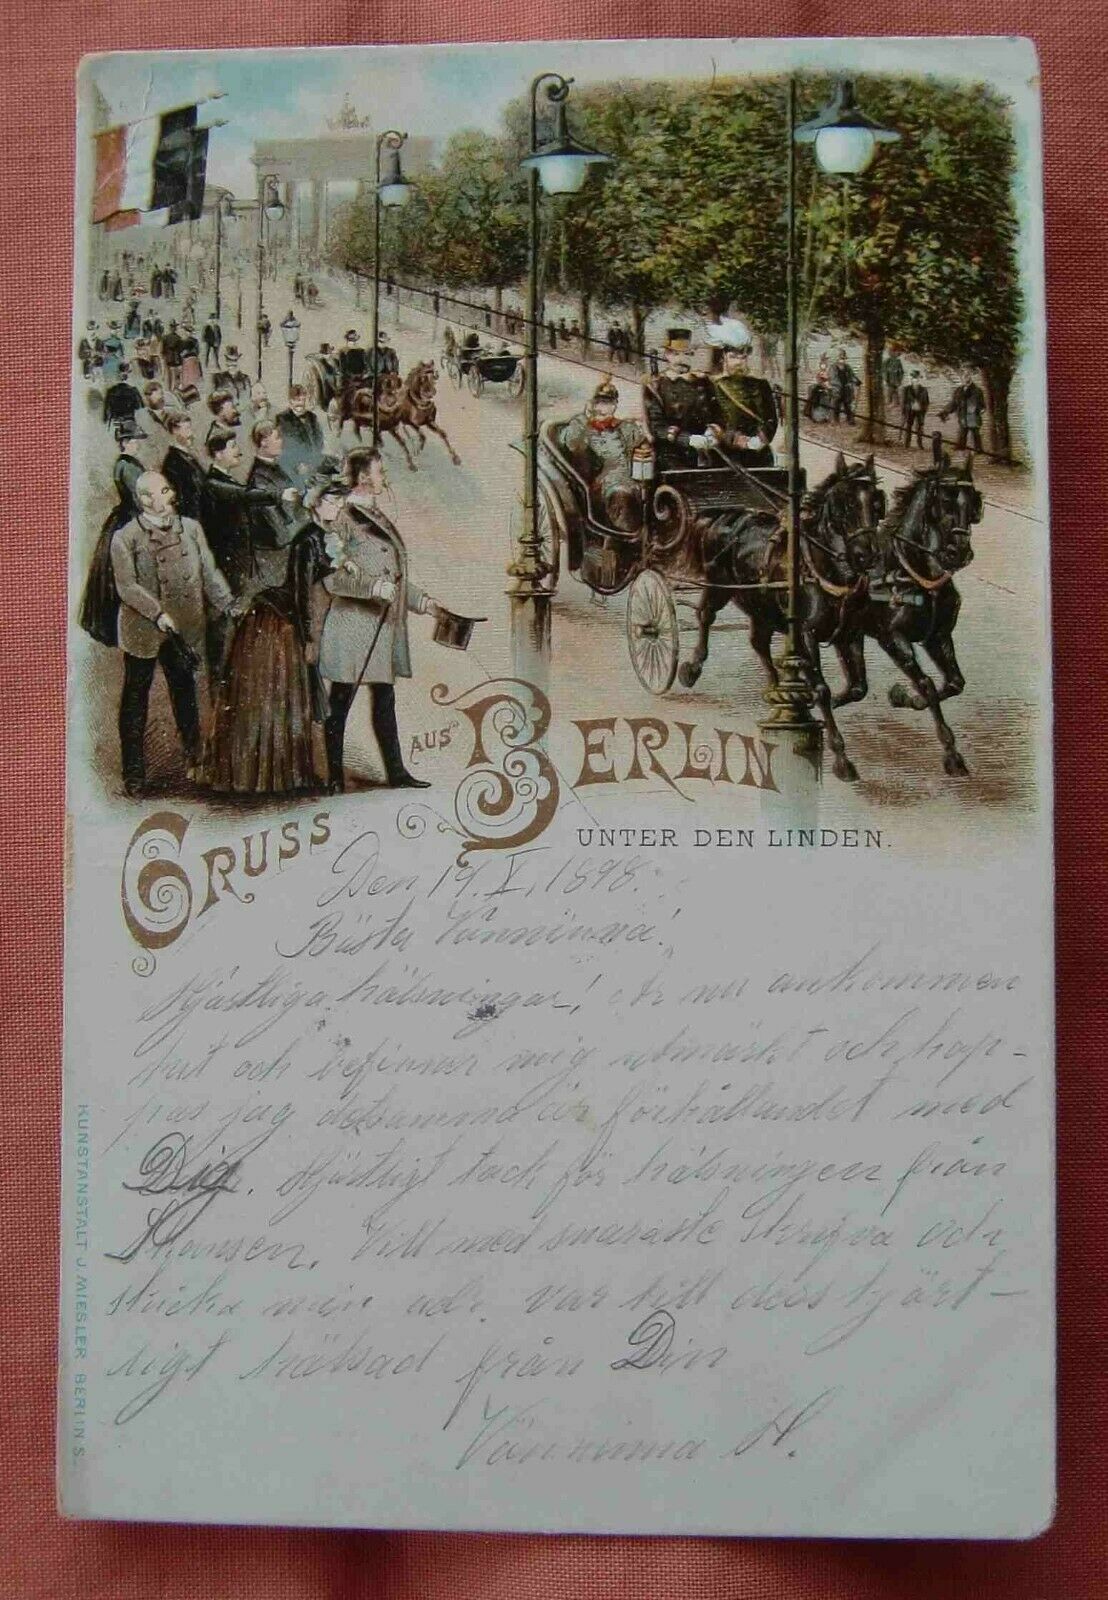 GRUSS AUS BERLIN
UNTER DEN LINDEN.
Den 19. X, 1898.
Bästa Vänninna!
Hjärtliga hälsningar! Är nu ankommen
hit och befinner mig utmärkt och hop-
pas jag detsamma är förhållandet med
Dig. Hjärtligt tack för hälsningen från
Vill med snaraste skrifva och
skicka min adr. var till dess hjärt-
ligt hälsad från Din
Vänninna H.
KUNSTANSTALT J. MIESLER BERLIN S.